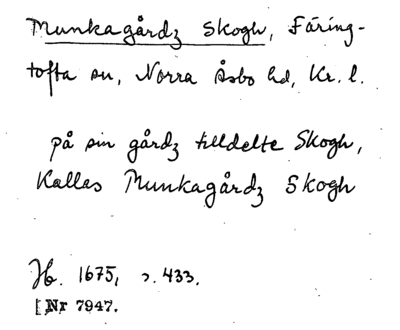 Munkagårdz Skogh, Färing-
tofta sn, Norra Åsbo hd, Kr. l.
på sin gårdz tilldelte Skogh,
Kallas Munkagårdz Skogh
Jb. 1675, s. 433.
[Nr 7947.